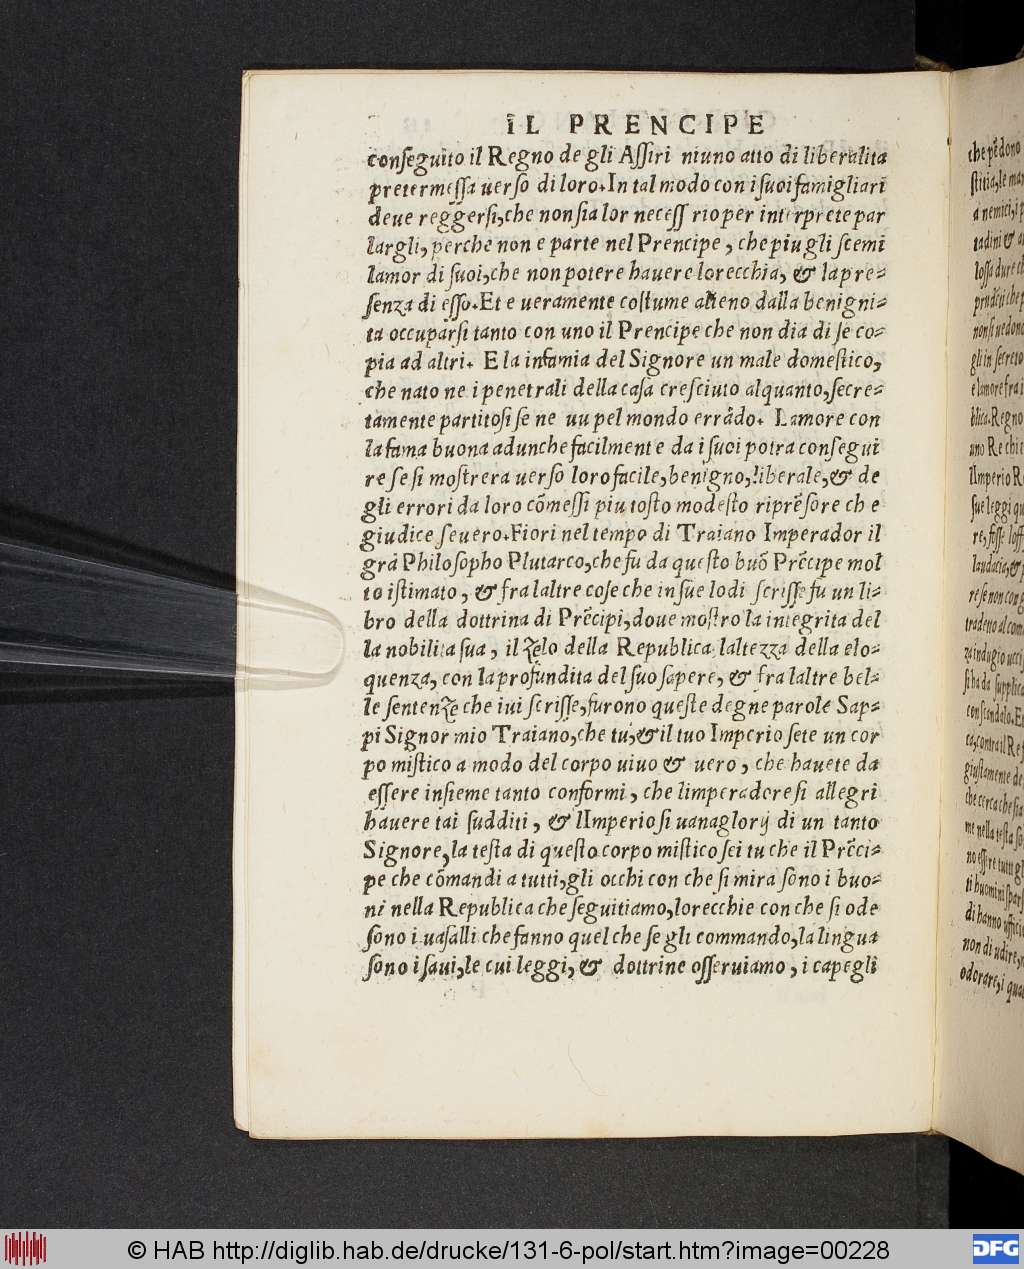 IL PRENCIPE
conseguito il Regno de gli Assiri niuno atto di liberalita
pretermessa uerso di loro. In tal modo con i suoi famigliari
deue reggersi, che non sia lor necess rio per interprete par
largli, perche non e parte nel Prencipe, che piu gli scemi
lamor di suoi, che non potere hauere lorecchia, & la pre=
senza di esso. Et e ueramente costume alieno dalla benigni=
ta occuparsi tanto con uno il Prencipe che non dia di se co=
pia ad altri. E la infamia del Signore un male domestico,
che nato ne i penetrali della casa cresciuto alquanto, secre=
tamente partitosi se ne uu pel mondo errãdo. Lamore con
la fama buona adunche facilmente da i suoi potra consegui
re se si mostrera uerso loro facile, benigno, liberale, & de
gli errori da loro cõmessi piu tosto modesto riprẽsore ch e
giudice seuero. Fiori nel tempo di Traiano Imperador il
grã Philosopho Plutarco, che fu da questo buõ Prẽcipe mol
to istimato, & fra laltre cose che in sue lodi scrisse fu un li=
bro della dottrina di Prẽcipi, doue mostro la integrita del
la nobilita sua, il zelo della Republica laltezza della elo=
quenza, con la profundita del suo sapere, & fra laltre bel=
le sentenze che iui scrisse, furono queste degne parole Sap=
pi Signor mio Traiano, che tu, & il tuo Imperio sete un cor
po mistico a modo del corpo uiuo & uero, che hauete da
essere insieme tanto conformi, che limperadore si allegri
hauere tai sudditi, & lImperio si uanaglorij di un tanto
Signore, la testa di questo corpo mistico sei tu che il Prẽci=
pe che cõmandi a tutti, gli occhi con che si mira sono i buo=
ni nella Republica che seguitiamo, lorecchie con che si ode
sono i uasalli che fanno quel che se gli commando, la lingua
sono i saui, le cui leggi, & dottrine osseruiamo, i capegli
che pẽdono
stitia, le
a nemici, i
tadini &
che p
non si uedono
gli in secreto
e lamore fra i
blica. Regno
uno Re chi
lImperio
sue leggi
re, fosse
laudacia, &
re se non
tradetto al
za indugio ucci
si ha da supplica
con scandalo.
contra il Re
giustamente de
che cerca che sia
me nella testa
no essere tutti
ti huomini
di hanno officio
non di udire,
odorare, i
© HAB http://diglib.hab.de/drucke/131-6-pol/start.htm?image=00228
DFG